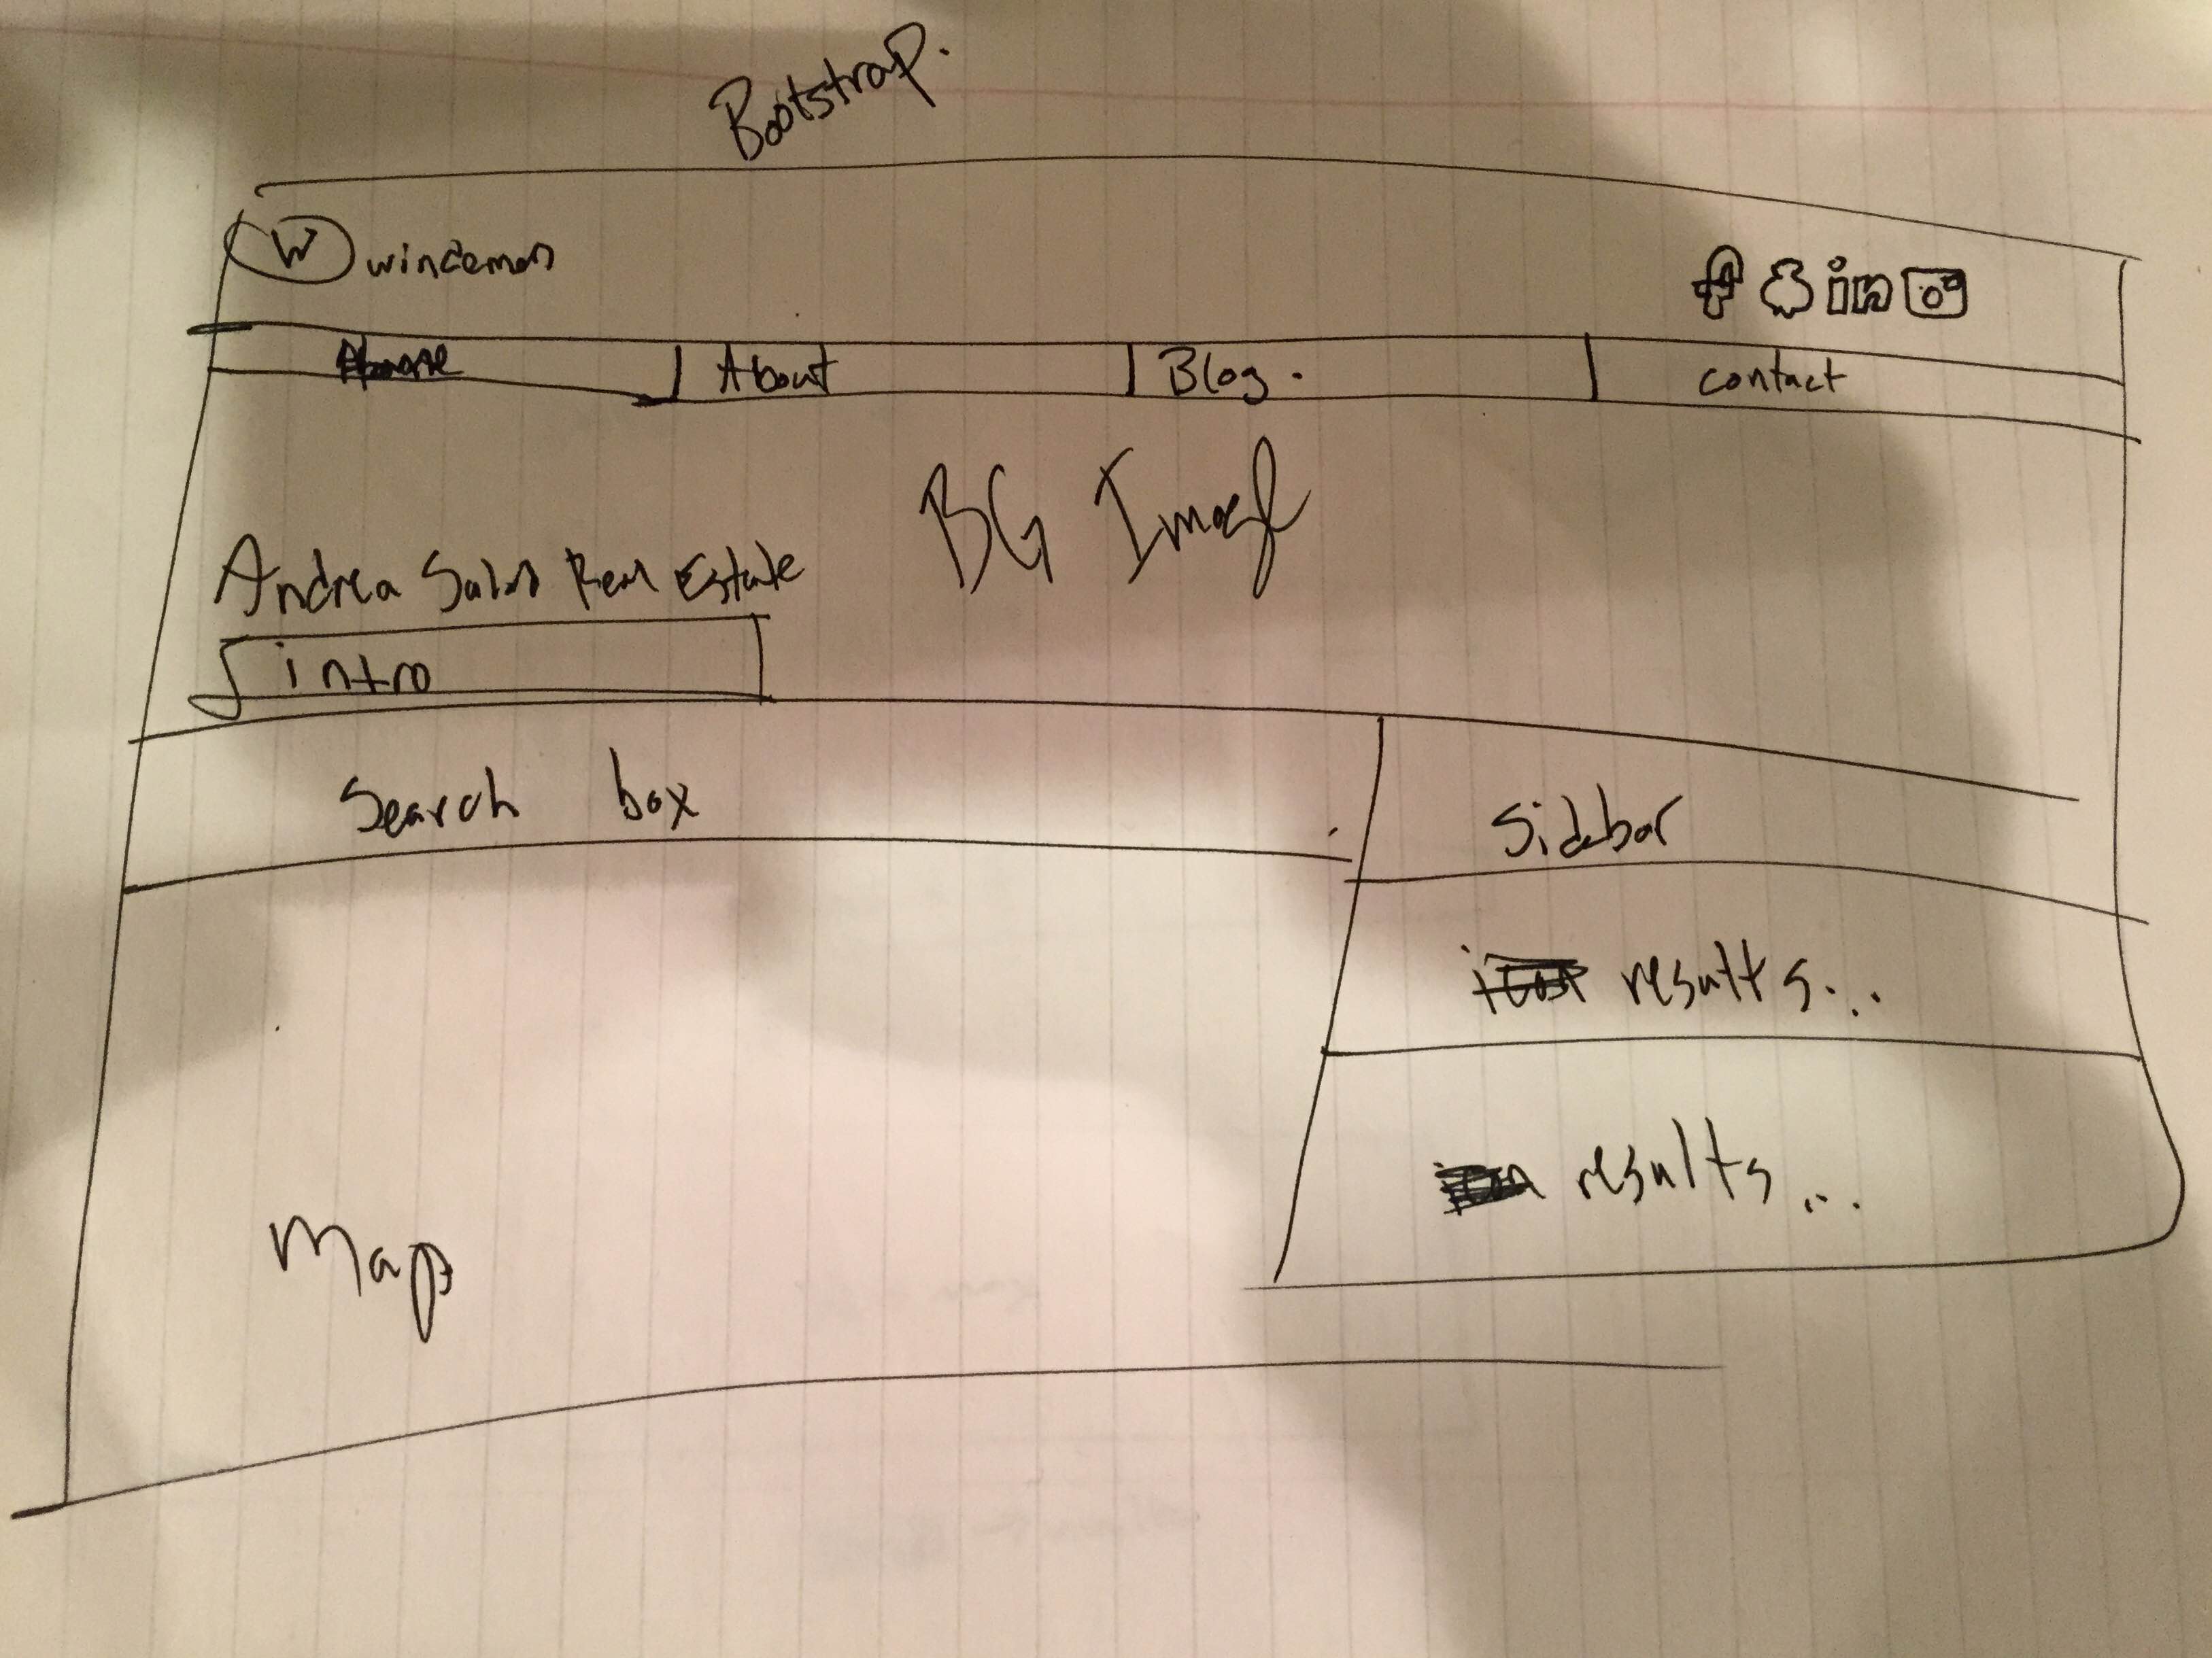 Bootstrap.
W
f in
Home
About
Blog.
contact
BG Image
Andrea Real Estate
intro
Search box
Sidebar
results...
results...
Map